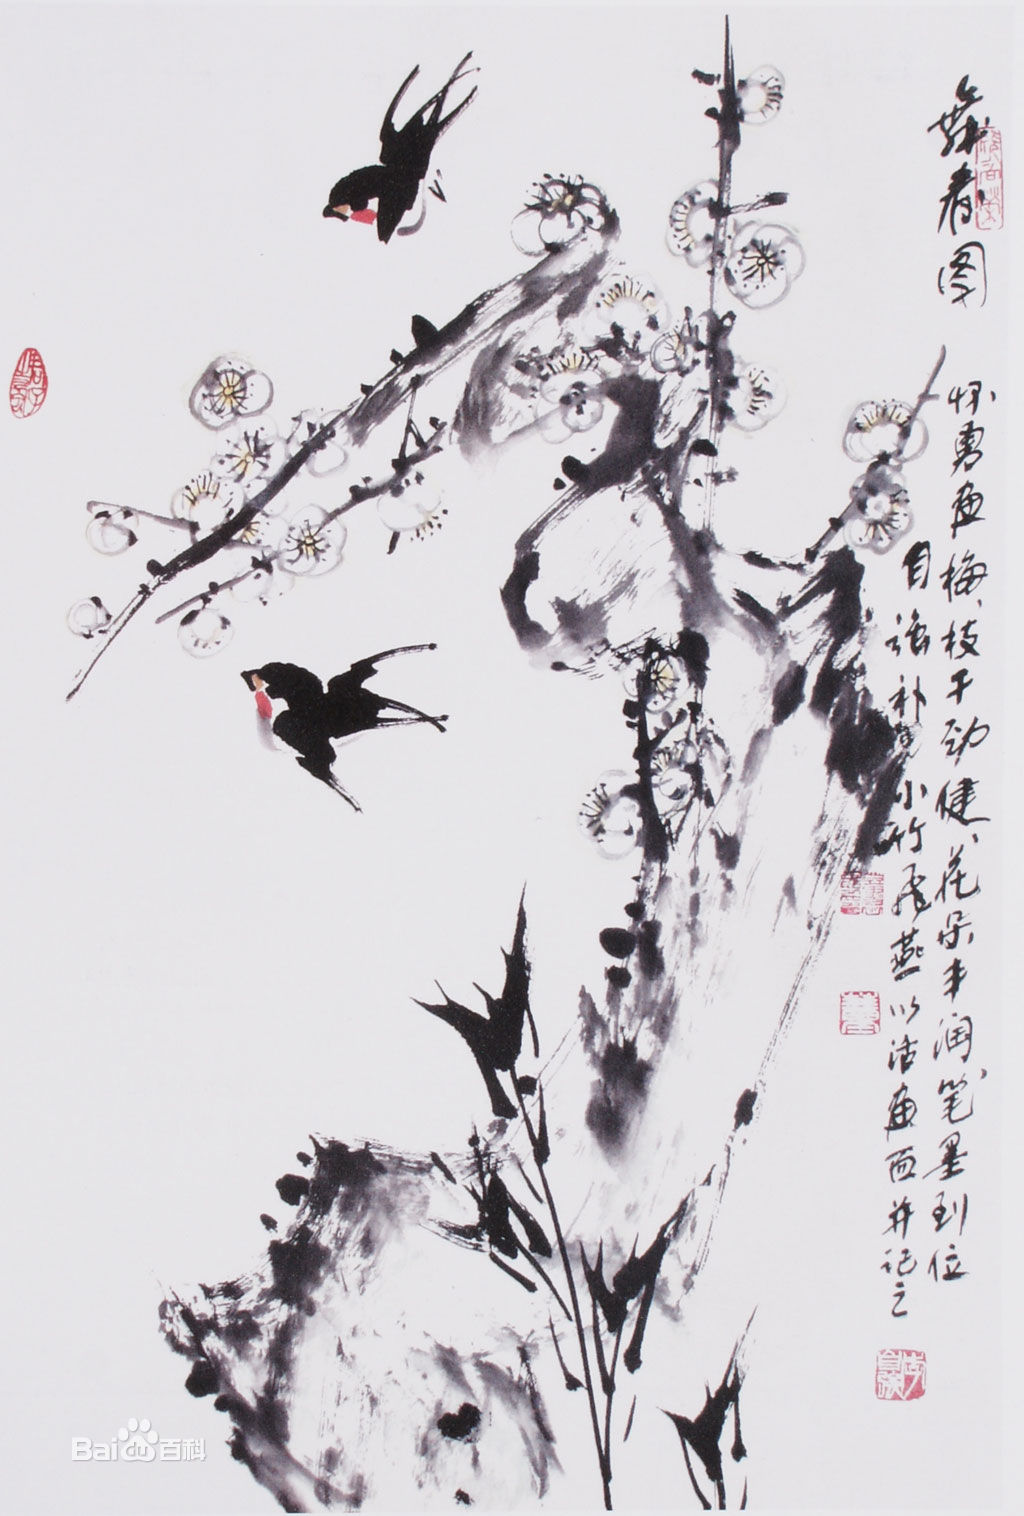 舞春图
怀勇画梅、枝干劲健、花朵丰润、笔墨到位
自强补小竹飞燕以活画面并记之
Baidu百科